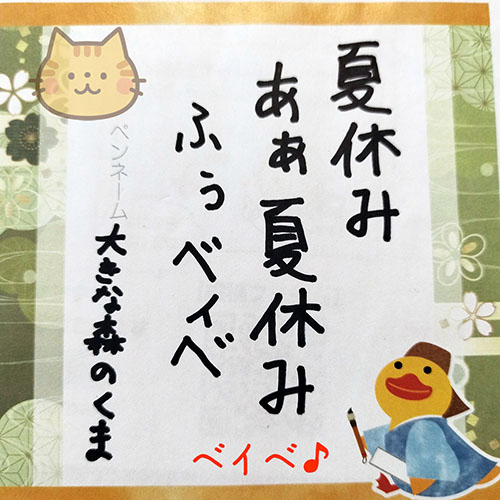 夏休み
あぁ夏休み
ふぅベィベ
ペンネーム
大きな森のくま
ベイベ♪